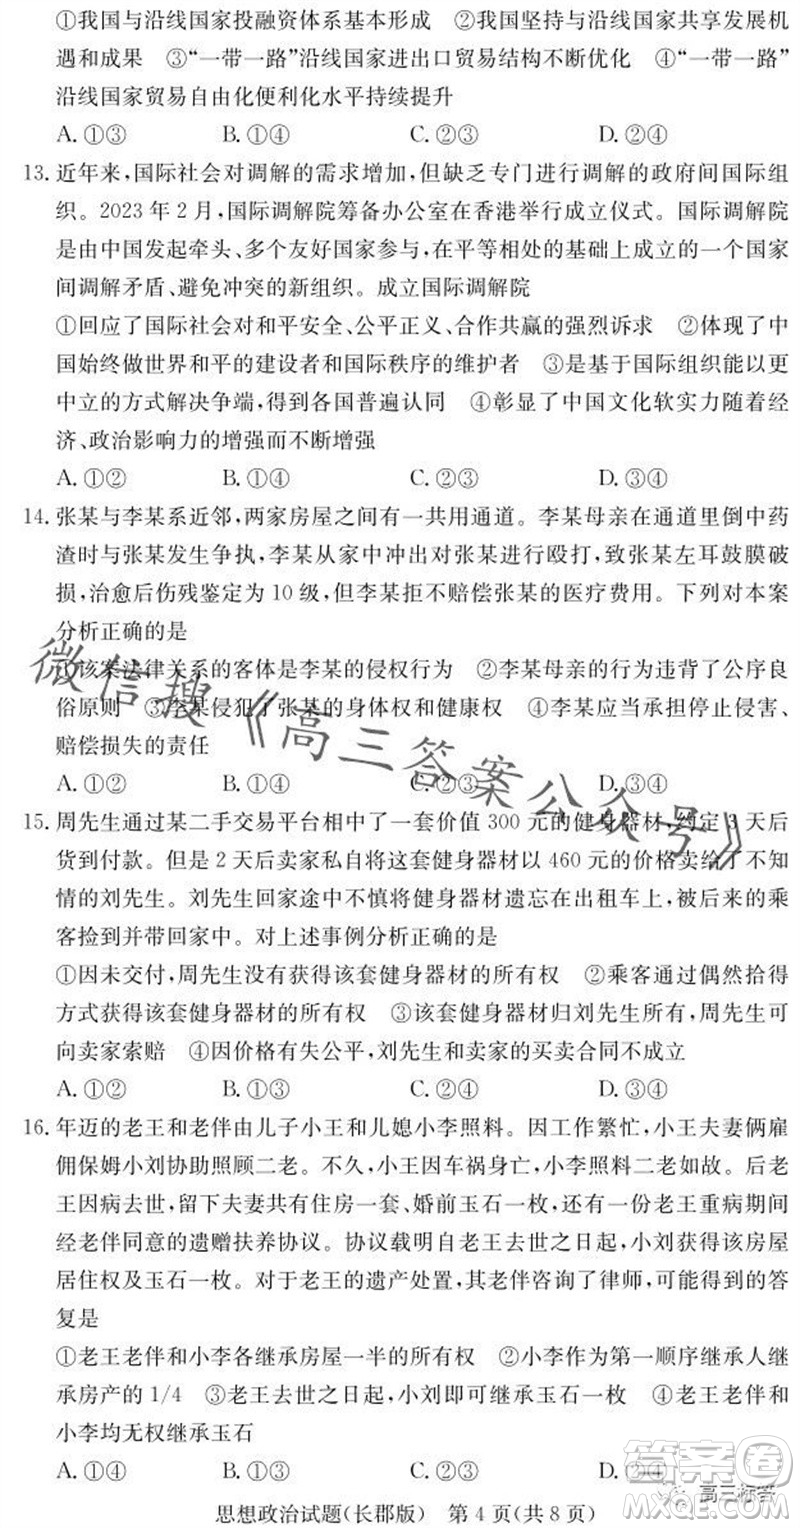 ①我国与沿线国家投融资体系基本形成　②我国坚持与沿线国家共享发展机
遇和成果　③“一带一路”沿线国家进出口贸易结构不断优化　④“一带一路”
沿线国家贸易自由化便利化水平持续提升
A. ①③　B. ①④　C. ②③　D. ②④
13. 近年来,国际社会对调解的需求增加,但缺乏专门进行调解的政府间国际组
织。2023 年 2 月,国际调解院筹备办公室在香港举行成立仪式。国际调解院
是由中国发起牵头、多个友好国家参与,在平等相处的基础上成立的一个国家
间调解矛盾、避免冲突的新组织。成立国际调解院
①回应了国际社会对和平安全、公平正义、合作共赢的强烈诉求　②体现了中
国始终做世界和平的建设者和国际秩序的维护者　③是基于国际组织能以更
中立的方式解决争端,得到各国普遍认同　④彰显了中国文化软实力随着经
济、政治影响力的增强而不断增强
A. ①②　B. ①④　C. ②③　D. ③④
14. 张某与李某系近邻,两家房屋之间有一共用通道。李某母亲在通道里倒中药
渣时与张某发生争执,李某从家中冲出对张某进行殴打,致张某左耳鼓膜破
损,治愈后伤残鉴定为 10 级,但李某拒不赔偿张某的医疗费用。下列对本案
分析正确的是
①该案法律关系的客体是李某的侵权行为　②李某母亲的行为违背了公序良
俗原则　③李某侵犯了张某的身体权和健康权　④李某应当承担停止侵害、
赔偿损失的责任
A. ①②　B. ①④　C. ②③　D. ③④
微信搜《高三答案公众号》
15. 周先生通过某二手交易平台相中了一套价值 300 元的健身器材,约定 3 天后
货到付款。但是 2 天后卖家私自将这套健身器材以 460 元的价格卖给了不知
情的刘先生。刘先生回家途中不慎将健身器材遗忘在出租车上,被后来的乘
客捡到并带回家中。对上述事例分析正确的是
①因未交付,周先生没有获得该套健身器材的所有权　②乘客通过偶然拾得
方式获得该套健身器材的所有权　③该套健身器材归刘先生所有,周先生可
向卖家索赔　④因价格有失公平,刘先生和卖家的买卖合同不成立
A. ①③　B. ①④　C. ②④　D. ③④
16. 年迈的老王和老伴由儿子小王和儿媳小李照料。因工作繁忙,小王夫妻俩雇
佣保姆小刘协助照顾二老。不久,小王因车祸身亡,小李照料二老如故。后老
王因病去世,留下夫妻共有住房一套、婚前玉石一枚,还有一份老王重病期间
经老伴同意的遗赠扶养协议。协议载明自老王去世之日起,小刘获得该房屋
居住权及玉石一枚。对于老王的遗产处置,其老伴咨询了律师,可能得到的答
复是
①老王老伴和小李各继承房屋一半的所有权　②小李作为第一顺序继承人继
承房产的 1/4　③老王去世之日起,小刘即可继承玉石一枚　④老王老伴和
小李均无权继承玉石
A. ①④　B. ①③　C. ②③　D. ②④
高三标答
答案圈
MXQE.COM
思想政治试题(长郡版)　第 4 页(共 8 页)